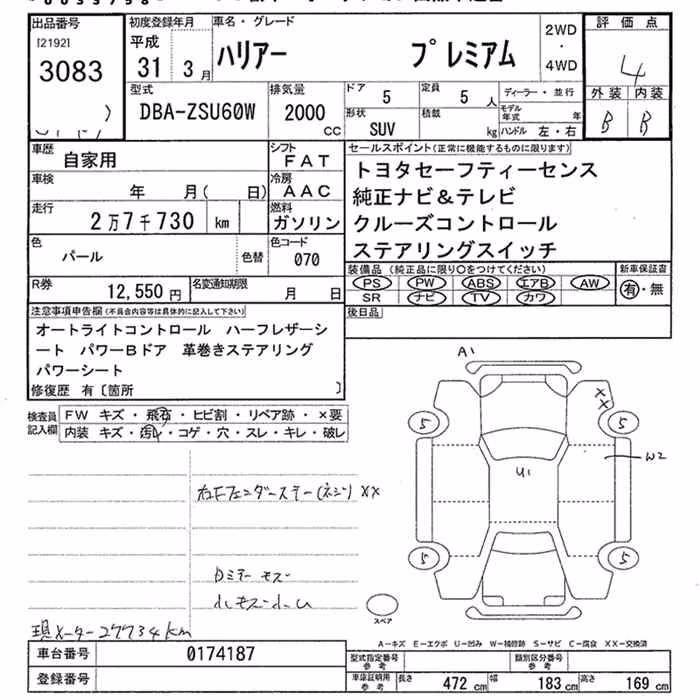 出品番号
[2192]
3083
初度登録年月
平成
31 3月
車名・グレード
ハリアー プレミアム
2WD
・
4WD
評価点
4
外装 内装
B B
型式
DBA-ZSU60W
排気量
2000
CC
ドア
5
定員
5 人
形状
SUV
積載
kg
ディーラー・並行
モデル年式 年
ハンドル 左・右
車歴
自家用
シフト
FAT
車検
年 月( 日)
冷房
AAC
走行
2万7千730 km
燃料
ガソリン
色
パール
色替
色コード
070
R券
12,550 円
名変通知期限
月 日
セールスポイント(正常に機能するものに限ります)
トヨタセーフティーセンス
純正ナビ&テレビ
クルーズコントロール
ステアリングスイッチ
装備品(純正品に限り〇をつけてください)
PS PW ABS エアB AW
SR ナビ TV カワ
新車保証書
有・無
後日品
注意事項申告欄(不具合内容等は具体的に記入して下さい)
オートライトコントロール ハーフレザーシ
ート パワーBドア 革巻きステアリング
パワーシート
修復歴 有〔箇所 〕
検査員記入欄
FW キズ・飛石・ヒビ割・リペア跡・×要
内装 キズ・汚レ・コゲ・穴・スレ・キレ・破レ
右Fフェンダーステー(ネジ) XX
現メーター27734km
A1
XX
5 5
W2
U1
5 5
スペア
A-キズ E-エクボ U-凹み W-補修跡 S-サビ C-腐食 XX-交換済
車台番号
0174187
登録番号
型式指定番号 参考
類別区分番号 参考
車庫証明用 参考
長さ 472 cm 幅 183 cm 高さ 169 cm